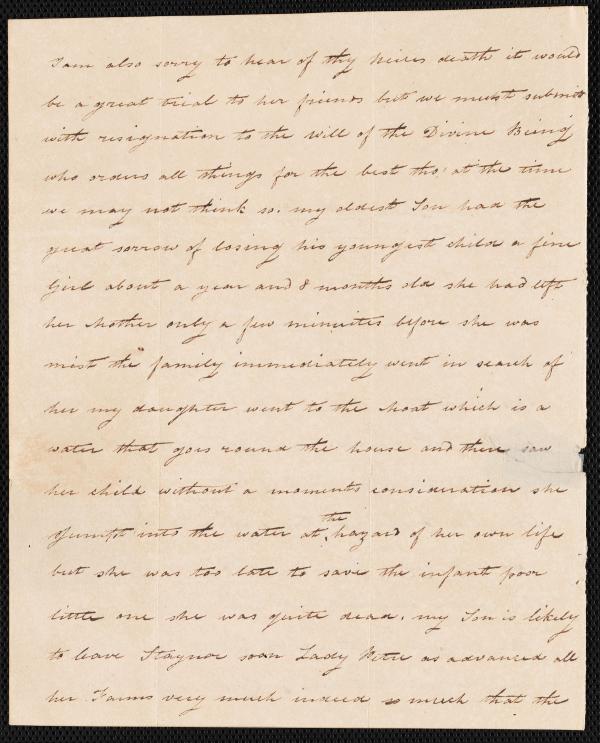 I am also sorry to hear of thy Neices death it would
be a great trial to her friends but we must submit
with resignation to the Will of the Divine Being
who orders all things for the best tho' at the time
we may not think so. my oldest Son had the
great sorrow of losing his youngest child a fine
Girl about a year and 8 months old she had left
her Mother only a few minuites before she was
mist the family immediately went in search of
her my daughter went to the Moat which is a
water that goes round the house and there saw
her child without a moments consideration she
Jumpt into the water at the hazard of her own life
but she was too late to save the infant poor
little one she was quite dead. my Son is likely
to leave Staynor soon Lady Petre as advanced all
her Farms very much indeed so much that the